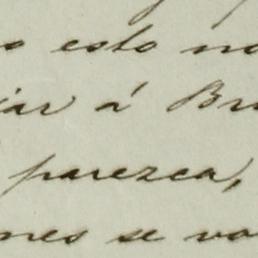 o esto no
iar á Br
parezca,
nes se va